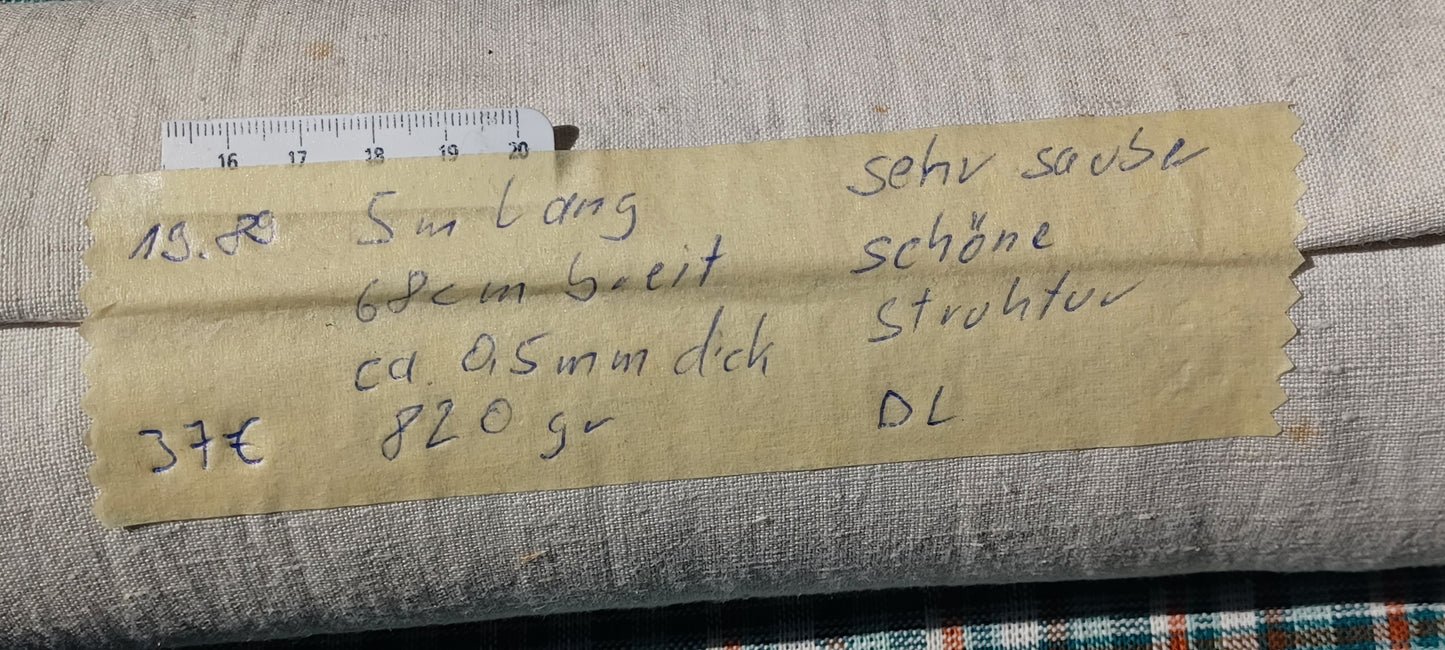 16 17 18 19 20
19.89 5m lang
68cm breit
ca. 0,5mm dick
37€ 820 gr
sehr sauber
schöne
struktur
DL